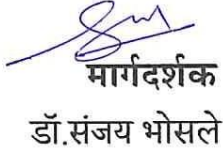 मार्गदर्शक
डॉ.संजय भोसले